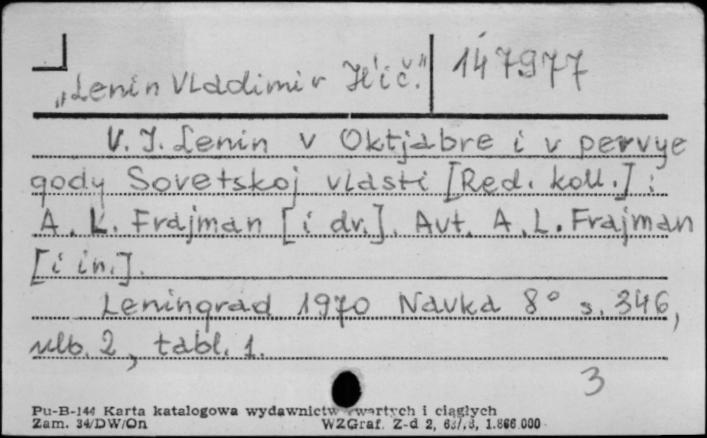 „Lenin Vladimir Il'ič." 147977
V. I. Lenin v Oktjabre i v pervye
gody Sovetskoj vlasti [Red. koll.]:
A. L. Frajman [i dr.]. Avt. A. L. Frajman
[i in.].
Leningrad 1970 Nauka 8° s. 346,
nlb. 2, tabl. 1.
3
Pu-B-144 Karta katalogowa wydawnictw zwartych i ciągłych
Zam. 34/DW/On WZGraf. Z-d 2, 1.866.000